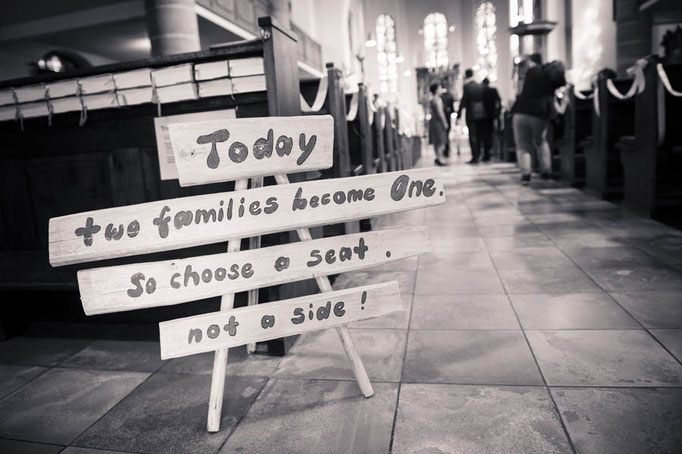 Today
two families become One.
so choose a seat.
not a side!